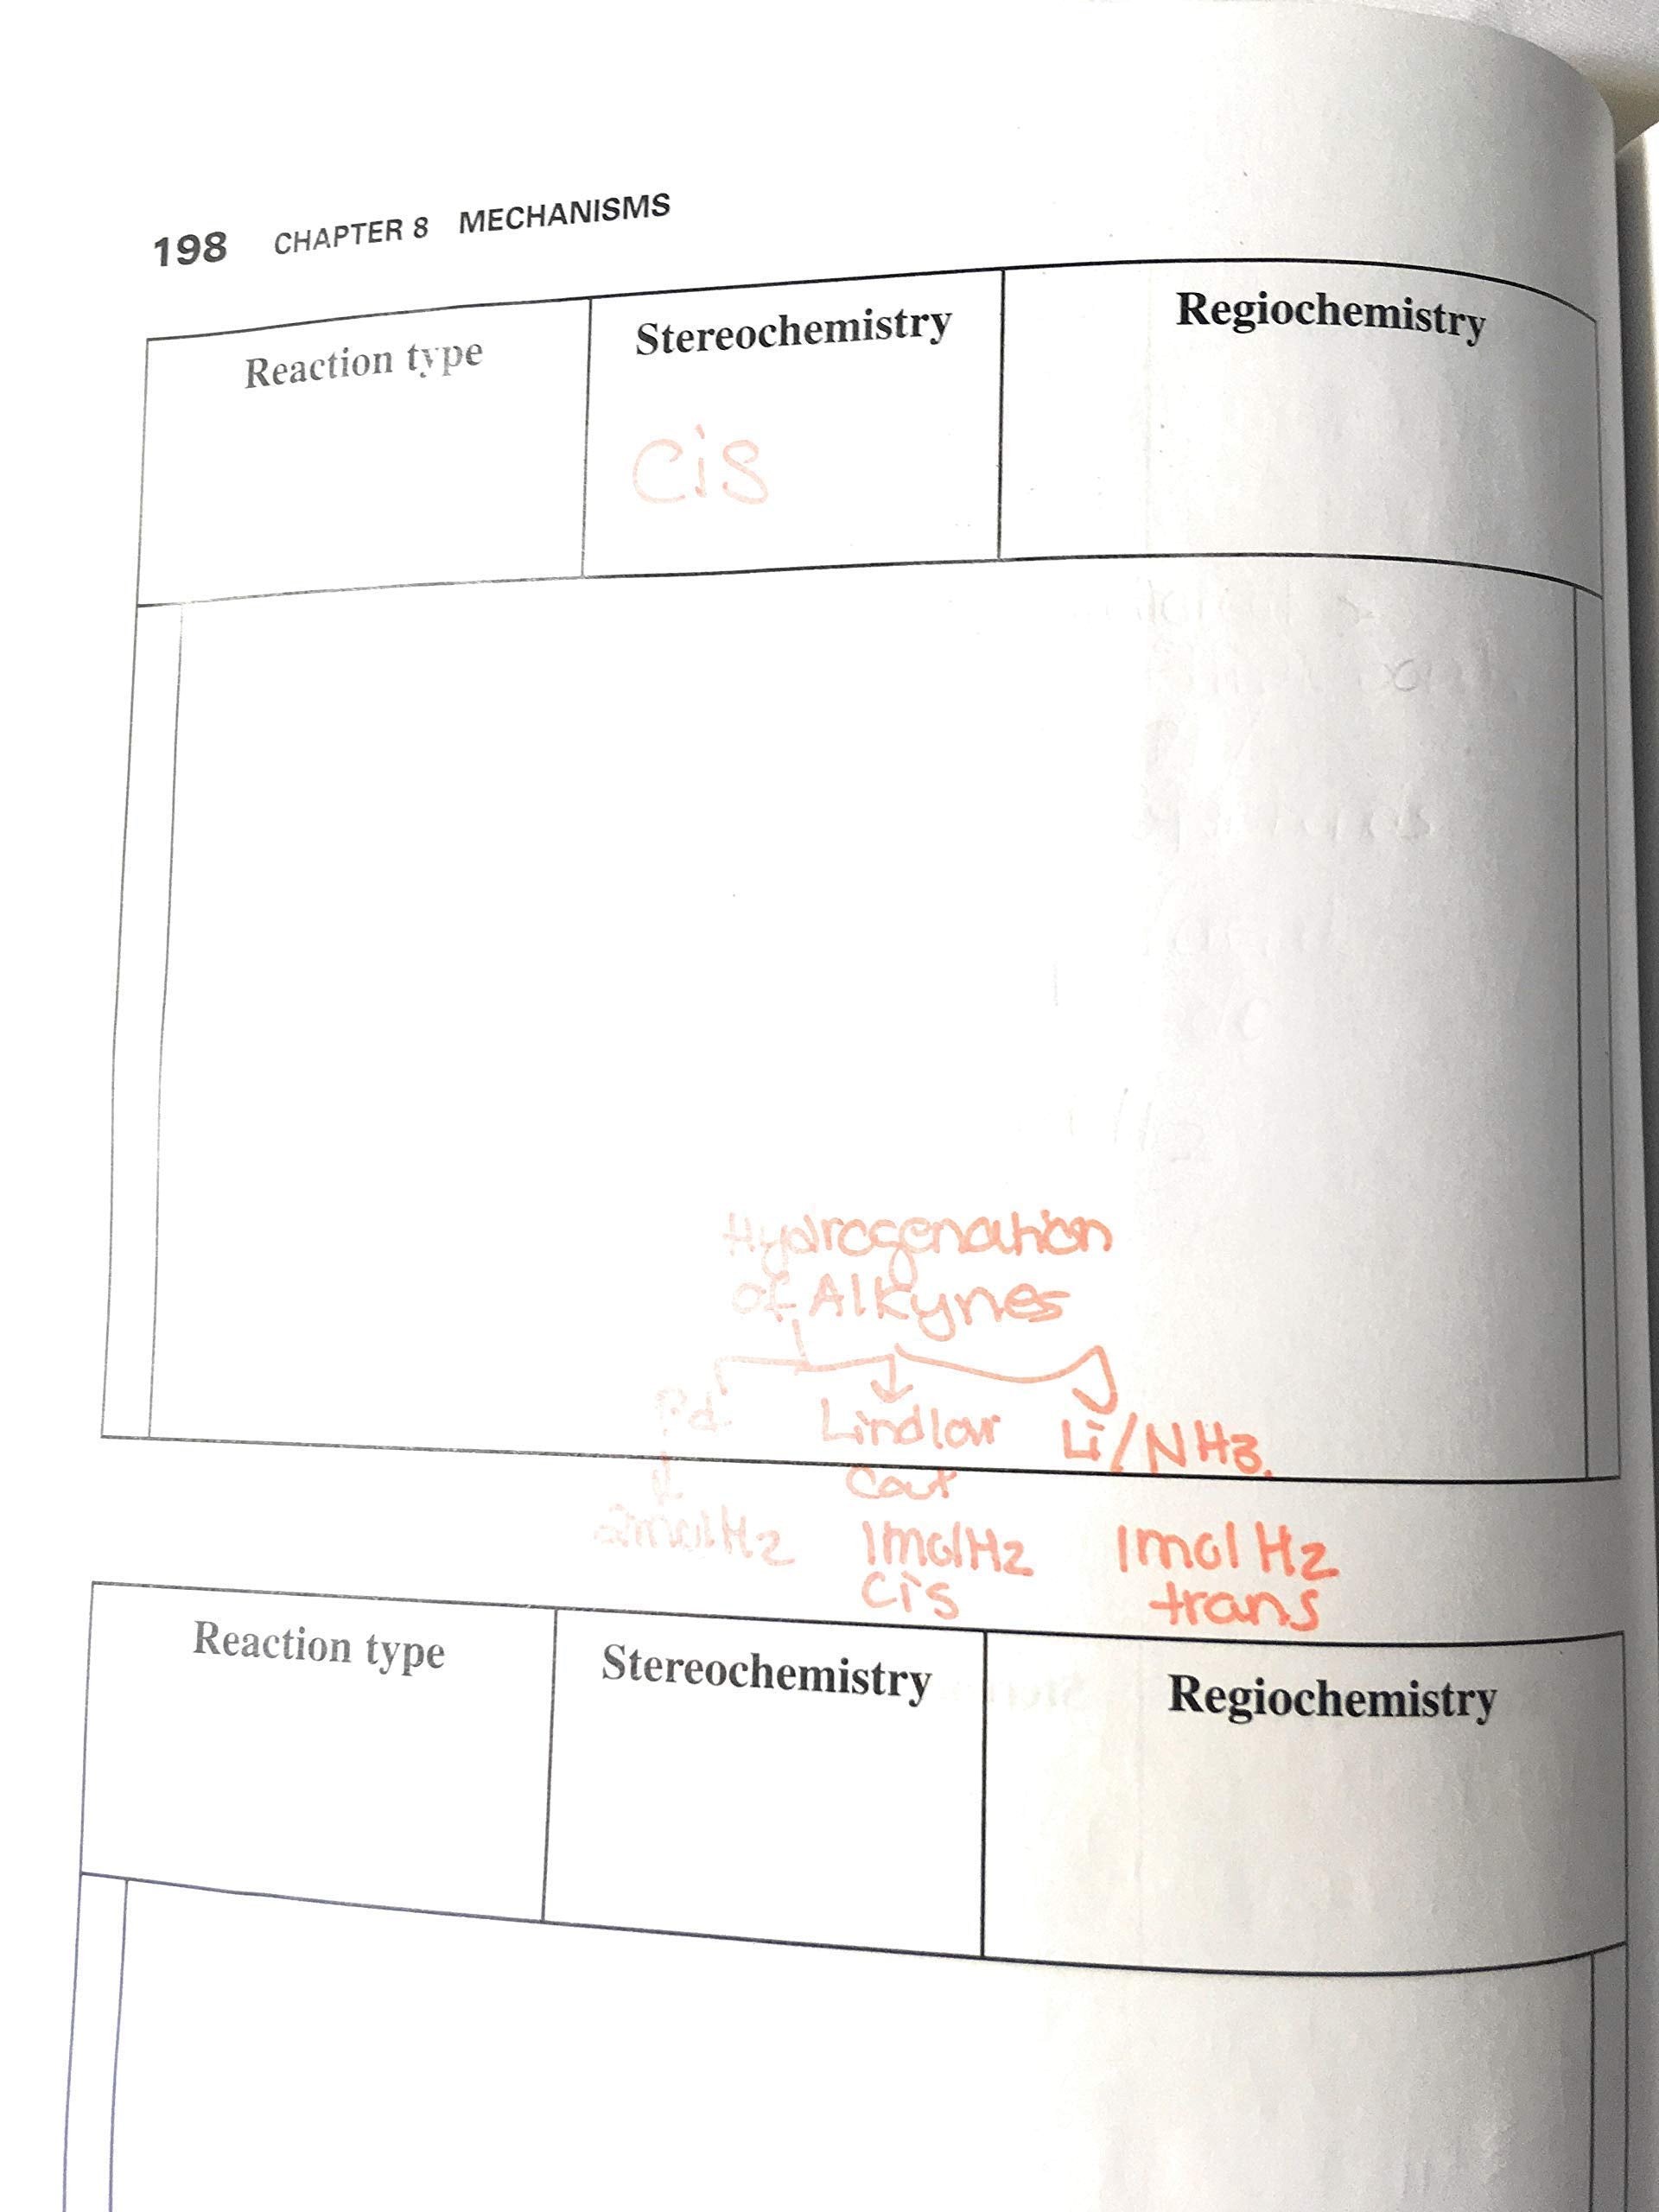 198 CHAPTER 8 MECHANISMS
Reaction type Stereochemistry Regiochemistry
cis
Hydrogenation
of Alkynes
Pd Lindlar Li/NH3.
Cat
2molH2 1molH2 1mol H2
cis trans
Reaction type Stereochemistry Regiochemistry